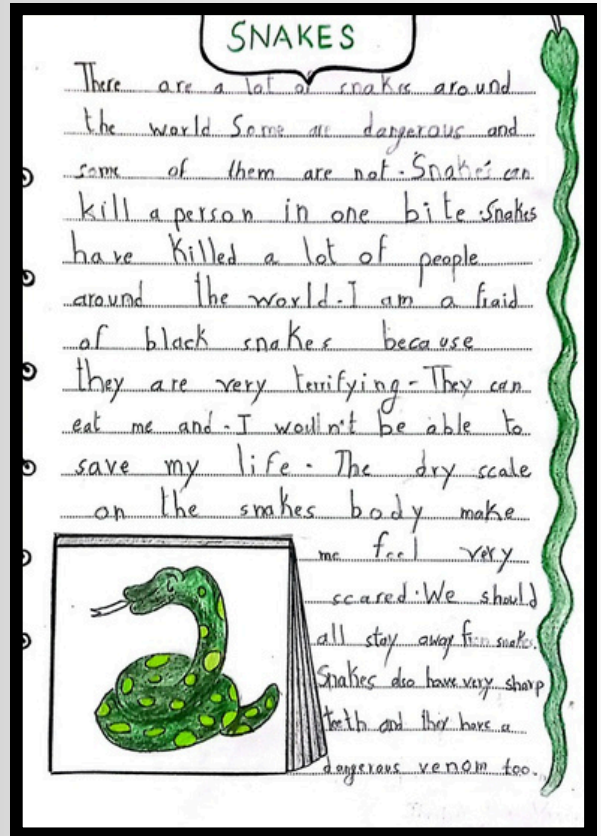 SNAKES
There are a lot of snakes around
the world Some are dangerous and
some of them are not. Snakes can
kill a person in one bite.Snakes
have killed a lot of people
around the world.I am a fraid
of black snakes because
they are very terrifying. They can
eat me and. I wouln't be able to
save my life. The dry scale
on the snakes body make
me feel very
scared. We should
all stay away from snakes.
Snakes also have very sharp
teeth and they have a
dangerous venom too.